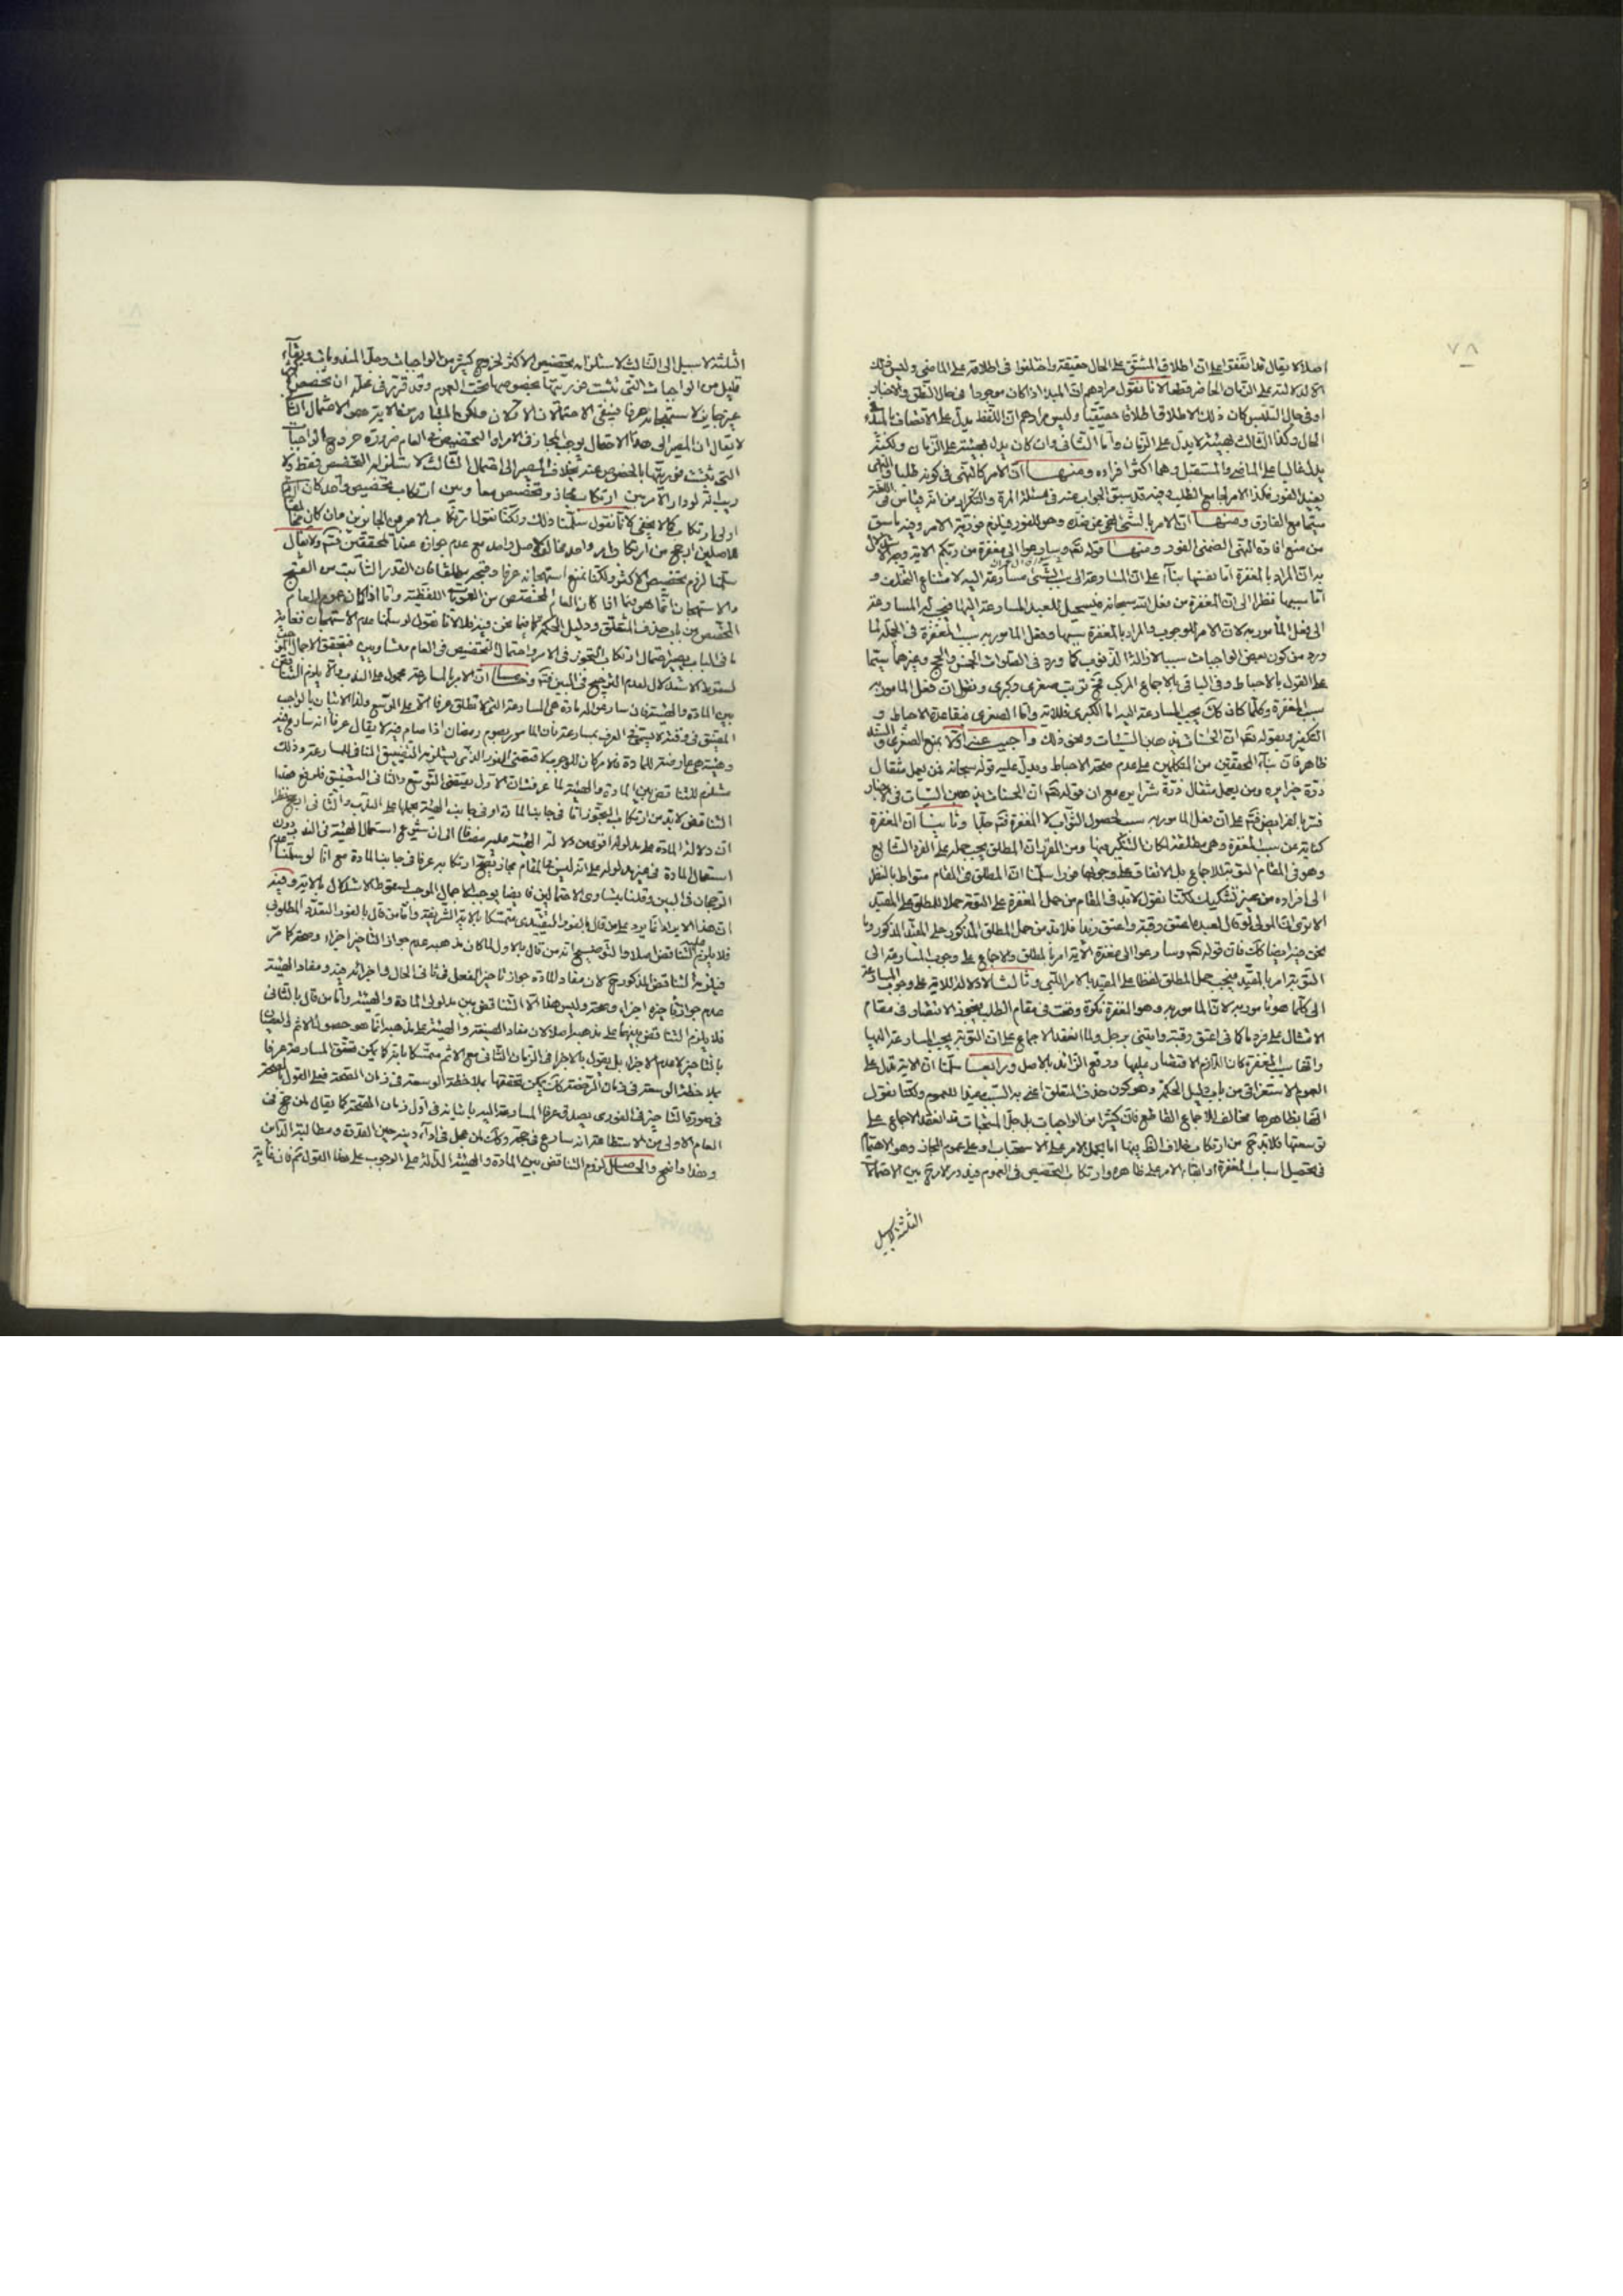 ٧٨
اصلا لا يقال قد اتفقوا على ان اطلاق المشتق على الحال حقيقة واختلفوا في اطلاقه على الماضي وليس ذلك
الا لدلالته على الزمان الحاضر قطعا لانا نقول مرادهم ان المبدا اذا كان موجودا في حال النطق والاخبار
او في حال التلبس كان ذلك الاطلاق اطلاقا حقيقيا وليس مرادهم ان اللفظ يدل على الاتصاف بالمبدء في
الحال وكذا الثالث لا يدل على الزمان واما الثاني وان كان يدل بهيئته على الزمان ولكنه
يدل غالبا على الماضي والمستقبل وهما اكثر افراده ومنها ان الامر كالنهي في كونه طلبا والنهي
يفيد الفور فكذا الامر لجامع الطلب وفيه قد سبق الجواب عنه في مسئلة المرة والتكرار من انه قياس في اللغة
سيما مع الفارق ومنها ان الامر بالشئ نهي عن ضده وهو للفور فيلزم فورية الامر وفيه ما سبق
من منع افادة النهي الضمني الفور ومنها قوله تعالى وسارعوا الى مغفرة من ربكم الاية وجه الاستدلال
به ان المراد بالمغفرة اما نفسها بناء على ان المسارعة الى سبب الشئ مسارعة اليه لامتناع التخلف و
اما سببها نظرا الى ان المغفرة من فعل الله سبحانه فيستحيل للعبد المسارعة اليها فيجب المسارعة
الى فعل المأمور به لان الامر للوجوب والمراد بالمغفرة سببها وفعل المأمور به سبب المغفرة في الجملة لما
ورد من كون بعض الواجبات سببا لازالة الذنوب كما ورد في الصلوات الخمس والحج وغيرهما سيما
على القول بالاحباط وفي الباقي بالاجماع المركب فح نرتب صغرى وكبرى ونقول ان فعل المأمور به
سبب المغفرة وكلما كان كك يجب المسارعة اليه اما الكبرى فللاية واما الصغرى فلقاعدة الاحباط و
التكفير ولقوله تعالى ان الحسنات يذهبن السيئات ونحو ذلك واجيب عنه اولا بمنع الصغرى
ظاهر فان بناء المحققين من المتكلمين على عدم صحة الاحباط ويدل عليه قوله سبحانه فمن يعمل مثقال
ذرة خيرا يره ومن يعمل مثقال ذرة شرا يره مع ان قوله تعالى ان الحسنات يذهبن السيئات في الاخبار
فسر بالفرايض فتم على ان فعل المأمور به سبب لحصول الثواب لا المغفرة فتم جليا وثانيا ان المغفرة
كناية عن سبب المغفرة وهي مطلقة لمكان التنكير فيها ومن المقرر ان المطلق يجب حمله على الفرد الشايع
وهو في المقام التوبة للاجماع بل الاتفاق على وجوبها فورا سلمنا ان المطلق في المقام متواط بالنظر
الى افراده من غير تشكيك لكنا نقول لابد في المقام من حمل المغفرة على التوبة حملا للمطلق على المقيد
الا ترى ان المولى لو قال لعبده اعتق رقبة واعتق زيدا فلابد من حمل المطلق المذكور على المقيد المذكور وما
نحن فيه ايضا كك فان قوله تعالى وسارعوا الى مغفرة الاية امر بالمطلق والاجماع على وجوب المسارعة الى
التوبة امر بالمقيد فيجب حمل المطلق لفظا على المقيد بالامر اللبي وثالثا لا دلالة للاية على وجوب المسارعة
الى كلما هو مأمور به لان المأمور به وهو المغفرة نكرة وقعت في مقام الطلب فيجوز الاقتصار في مقام
الامتثال على فرد ما كما في اعتق رقبة وايتني برجل ولما انعقد الاجماع على ان التوبة يجب المسارعة اليها
وانها سبب المغفرة كان اللازم الاقتصار عليها ودفع الزائد بالاصل ورابعا سلمنا ان الاية تدل على
العموم الاستغراقي من باب دليل الحكمة وهو كون حذف المتعلق اعني به السبب مفيدا للعموم ولكنا نقول
انها بظاهرها مخالف للاجماع القاطع فان كثيرا من الواجبات بل جل المستحبات قد انعقد الاجماع على
توسعتها فلابد ح من ارتكاب خلاف الظاهر فيها اما بحمل الامر على الاستحباب او على عموم المجاز وهو الاهتمام
في تحصيل اسباب المغفرة او ابقاء الامر على ظاهره وارتكاب التخصيص في العموم فيدور الامر ح بين الاحتمالات
الثلثة لا سبيل
الثلثة لا سبيل الى الثالث لاستلزامه تخصيص الاكثر لخروج كثير من الواجبات وجل المندوبات وبقاء
قليل من الواجبات التي ثبت فوريتها بخصوصها تحت العموم وقد قرر في محله ان تخصيص الاكثر
غير جايز لاستهجانه عرفا فبقي الاحتمالان الاولان
لا يقال ان المصير الى هذا الاحتمال يوجب المجاز في الامر والتخصيص في العام ضرورة خروج الواجبات
التي ثبت فوريتها بالخصوص عنه بخلاف المصير الى احتمال الثالث لاستلزامه التخصيص فقط ولا
ريب انه لو دار الامر بين ارتكاب مجاز وتخصيص معا وبين ارتكاب تخصيص واحد كان الثاني
اولى ارتكابا كما لا يخفى لانا نقول سلمنا ذلك ولكنا نقول ارتكاب الامر من الجايزين وان كان مخالفا
للاصلين ارجح من ارتكاب امر واحد مخالف لاصل واحد مع عدم جوازه عند المحققين فتم ولا يقال
سلمنا لزوم تخصيص الاكثر ولكنا نمنع استهجانه عرفا وقبحه مطلقا فان القدر الثابت من القبح
والاستهجان انما هو فيما اذا كان العام المخصص من العمومات اللفظية واما اذا كان عموم العام
المخصص من باب حذف المتعلق ودليل الحكمة كما فيما نحن فيه فلا لانا نقول لو سلمنا عدم الاستهجان فغاية
ما في الباب يصير احتمال ارتكاب التجوز في الامر واحتمال التخصيص في العام متساويين فيتحقق الاجمال الموجب
لسقوط الاستدلال لعدم الترجيح في البين فتم وخامسا ان الامر بالمسارعة محمول على الندب والا يلزم التناقض
بين المادة والهيئة فان سارعوا له مادة هي المسارعة التي لا تطلق عرفا الا على الموسع ولذا الاتيان بالواجب
المضيق في وقته لا يسمى في العرف بمسارعة فان المأمور بصوم رمضان اذا صام فيه لا يقال عرفا انه سارع فيه
وهيئة هي معارضة للمادة فلو كان للوجوب لاقتضى الفور الذي يستلزمه التضييق المنافي للمسارعة وذلك
مستلزم للتناقض بين المادة والهيئة لما عرفت ان الاول يقتضي التوسع والثاني التضييق فلرفع هذا
التناقض لابد من ارتكاب التجوز اما في جانب المادة او في جانب الهيئة بحملها على الندب والثاني ارجح نظرا
ان دلالة المادة على مدلولها اقوى من دلالة الهيئة عليه مضافا الى ان شيوع استعمال الهيئة في الندب دون
استعمال المادة في غير مدلوله على انه ليس في المقام مجاز يصح ارتكابه عرفا في جانب المادة مع انا لو سلمنا عدم
الترجيح في البين وقلنا بتساوى الاحتمالين فايضا يوجب الاجمال الموجب لسقوط الاستدلال بالاية وفيه
ان هذا الايراد انما يرد على من قال بالفور التقييدى متمسكا بالاية الشريفة واما من قال بالفور التعددى المطلوبى
فلا يلزم عليه التناقض اصلا والتوضيح انه من قال بالاول لما كان مذهبه عدم جواز التاخير اجزاء وصحة كما مر
فيلزمه التناقض المذكور ح لان مفاد المادة جواز تاخير الفعل في ثاني الحال واجزائه فيه ومفاد الهيئة
عدم جواز تاخيره اجزاء وصحة وليس هذا الا التناقض بين مدلولي المادة والهيئة واما من قال بالثاني
فلا يلزم التناقض بينهما على مذهبه اصلا لان مفاد الصيغة والهيئة على مذهبه انما هو حصول الاثم والعصيان
بالتاخير لا عدم الاجزاء بل يقول بالاجزاء في الزمان الثاني مع الاثم متمسكا بانه كما يمكن تحقق المسارعة عرفا
بملاحظة الوسعة في زمان الرخصة كك يمكن تحققها بملاحظة الوسعة في زمان الصحة فعلى القول بالصحة
في صورة التاخير في الفورى يصدق عرفا المسارعة اليه باتيانه في اول زمان الصحة كما يقال لمن حج في
العام الاول من الاستطاعة انه سارع في حجه وكك لمن عجل في اداء دينه حين القدرة ومطالبة الداين
وهذا واضح والحاصل لزوم التناقض بين المادة والهيئة الدالة على الوجوب على هذا القول تم فان غاية